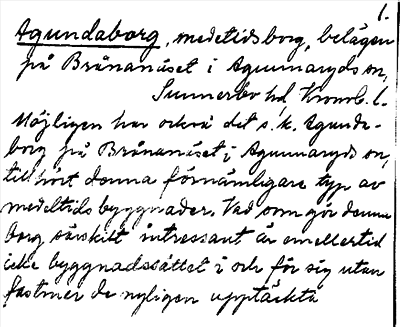 1.
Agundaborg, medeltidsborg, belägen
på Brånanäset i Agunnaryds sn,
Sunnerbo hd Kronob. l.
Möjligen har också det s.k. Agunda-
borg på Brånanäset i Agunnaryds sn,
tillhört denna förnämligare typ av
medeltidsbyggnader. Vad som gör denna
borg särskilt intressant är emellertid
icke byggnadssättet i och för sig utan
fastmer de nyligen upptäckta